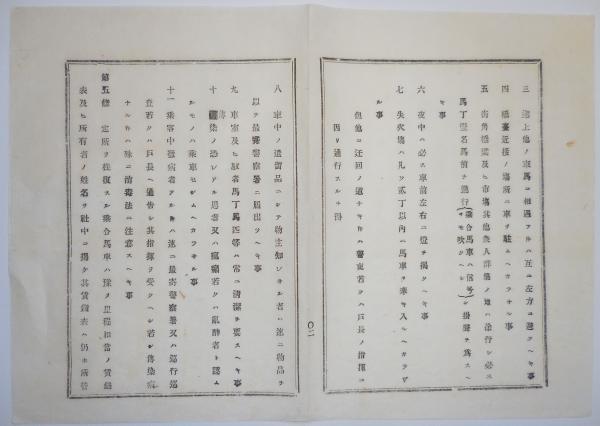 三 途上他ノ車馬ニ相遇フトキハ互ニ左方ニ避クヘキ事
四 橋臺近接ノ場所ニ車ヲ駐ムヘカラサル事
五 街角橋梁及ヒ市塲其他衆人群集ノ地ハ徐行シ必ス
馬丁壹名馬前ニ先行(乗合馬車ハ信号ヲモ吹クヘシ)シ掛聲ヲ爲スヘ
キ事
六 夜中ハ必ス車前左右ニ燈ヲ掲クヘキ事
七 失火塲ハ凡ソ貳丁以內ニ馬車ヲ牽キ入ルヘカラサ
ル事
但他ニ迂回ノ道ナキトキハ警吏若クハ戸長ノ指揮ニ
因リ通行スルヲ得
〇二
八 車中ノ遺留品ニシテ物主知レサル者ハ速ニ物品ヲ
以テ最寄警察署ニ屆出ツヘキ事
九 車室及ヒ馭者馬丁馬匹等ハ常ニ清潔ヲ要スヘキ事
十 傳染ノ恐レアル患者又ハ瘋癲若クハ亂酔者ト認ム
ルモノハ乗車セシムヘカラサル事
十一 乗客中發病者アルトキハ速ニ最寄警察署又ハ巡行巡
査若クハ戸長ヘ通告シ其指揮ヲ受クヘシ若シ傳染病
ナルトキハ殊ニ消毒法ニ注意スヘキ事
第五條 定所ヲ往復スル乗合馬車ハ豫メ里程相當ノ賃錢
表及ヒ所有者ノ姓名ヲ社中ニ掲ケ其賃錢表ハ仍ホ所轄